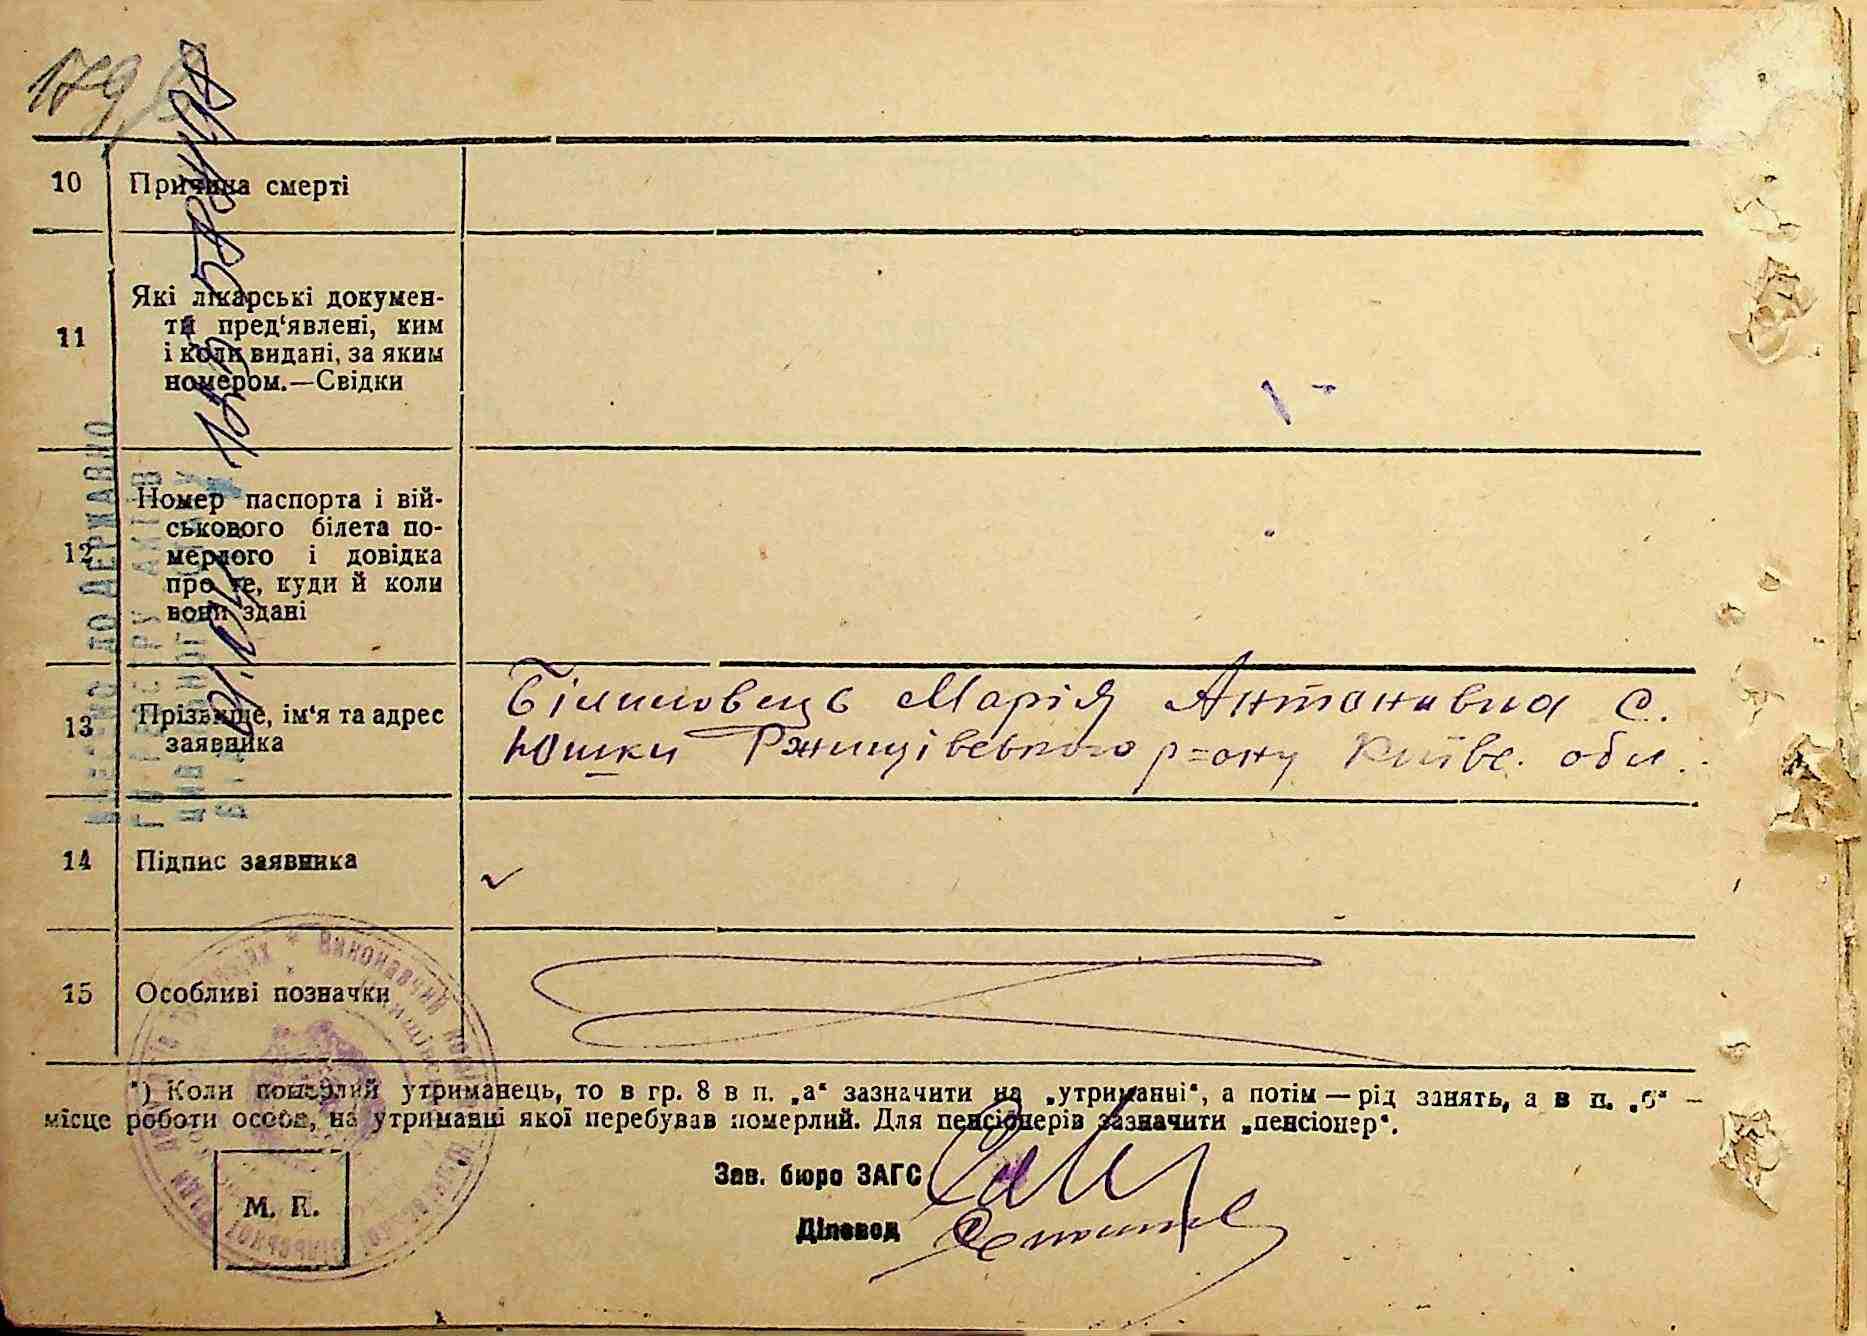 179
10 Причина смерті
11 Які лікарські докумен-
ти пред'явлені, ким
і коли видані, за яким
номером.—Свідки
12 Номер паспорта і вій-
ськового білета по-
мерлого і довідка
про те, куди й коли
вони здані
13 Прізвище, ім'я та адрес
заявника
Марія Антонивна с.
Юшки Ржищівського р=ону Київс. обл.
14 Підпис заявника
15 Особливі позначки
*) Коли померлий утриманець, то в гр. 8 в п. „а“ зазначити на „утриманні“, а потім — рід занять, а в п. „б“ —
місце роботи особи, на утриманні якої перебував померлий. Для пенсіонерів зазначити „пенсіонер“.
Зав. бюро ЗАГС
Діловод
М. П.
ВНЕСЕНО ДО ДЕРЖАВНО
ГО РЕЄСТРУ АКТІВ
ЦИВІЛЬНОГО СТАНУ
Виконавчий